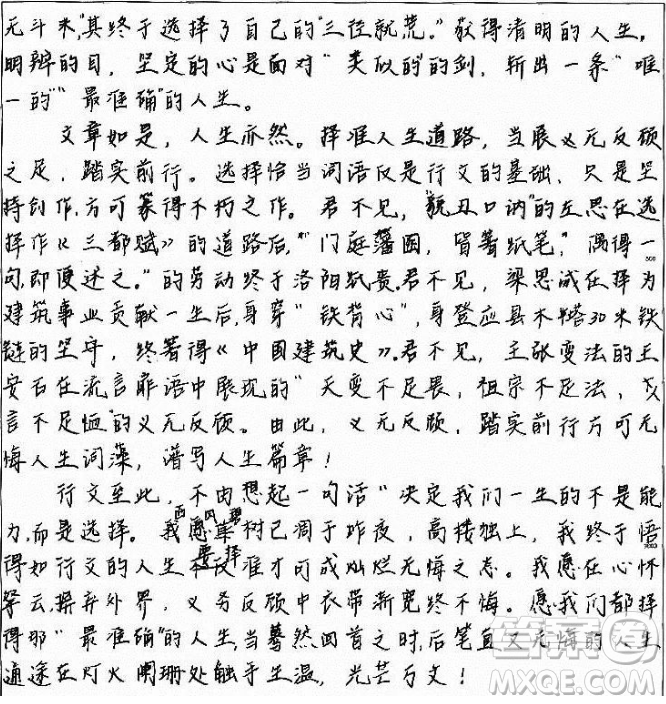 无斗米，"其终于选择了自己的"三径就荒。"获得清明的人生。
明辨的目，坚定的心是面对"类似的"的剑，斩出一条"唯
一的""最准确"的人生。
文章如是，人生亦然。择准人生道路，当展义无反顾
之足，踏实前行。选择恰当词语仅是行文的基础，只是坚
持创作，方可纂得不朽之作。君不见，"貌丑口讷"的左思在选
择作《三都赋》的道路后，"门庭藩圂，皆著纸笔，""偶得一
500
句，即便述之。"的劳动终于洛阳纸贵。君不见，梁思成在择为
建筑事业贡献一生后，身穿"铁背心"，身登应县木塔30米铁
链的坚守，终著得《中国建筑史》。君不见，主张变法的王
安石在流言蜚语中展现的"天变不足畏，祖宗不足法，戈
言不足恤"的义无反顾。由此，义无反顾，踏实前行方可无
悔人生词藻，谱写人生篇章！
行文至此，不由想起一句话"决定我们一生的不是能
力，而是选择。"我愿西风碧树已凋于昨夜，高楼独上，我终于悟
得如行文的人生要择准才可成灿烂无悔之态。我愿在心怀
琴云，摒弃外界，义务反顾中衣带渐宽终不悔。愿我们都择
得那"最准确"的人生，当蓦然回首之时，后笔直又无悔的人生
通途在灯火阑珊处触手生温，光芒万丈！
MXQE.COM